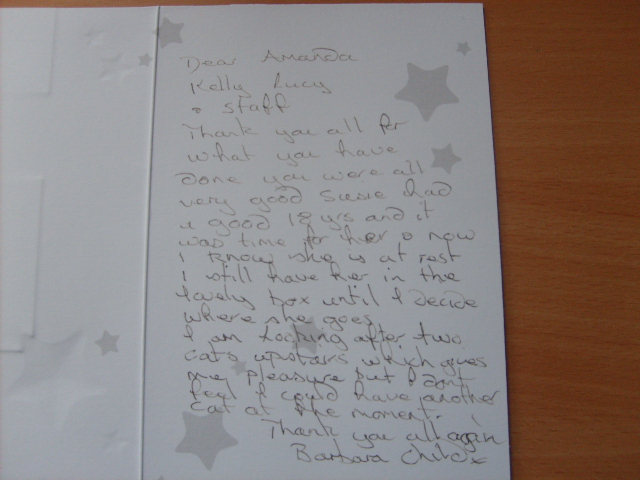 Dear Amanda
Kelly Lucy
& staff
Thank you all for
what you have
done you were all
very good Susie had
a good 18 yrs and it
was time for her & now
I know she is at rest
I still have her in the
lovely box until I decide
where she goes
I am looking after two
cats upstairs which gives
me pleasure but I dont
feel I could have another
cat at the moment.
Thank you all again
Barbara